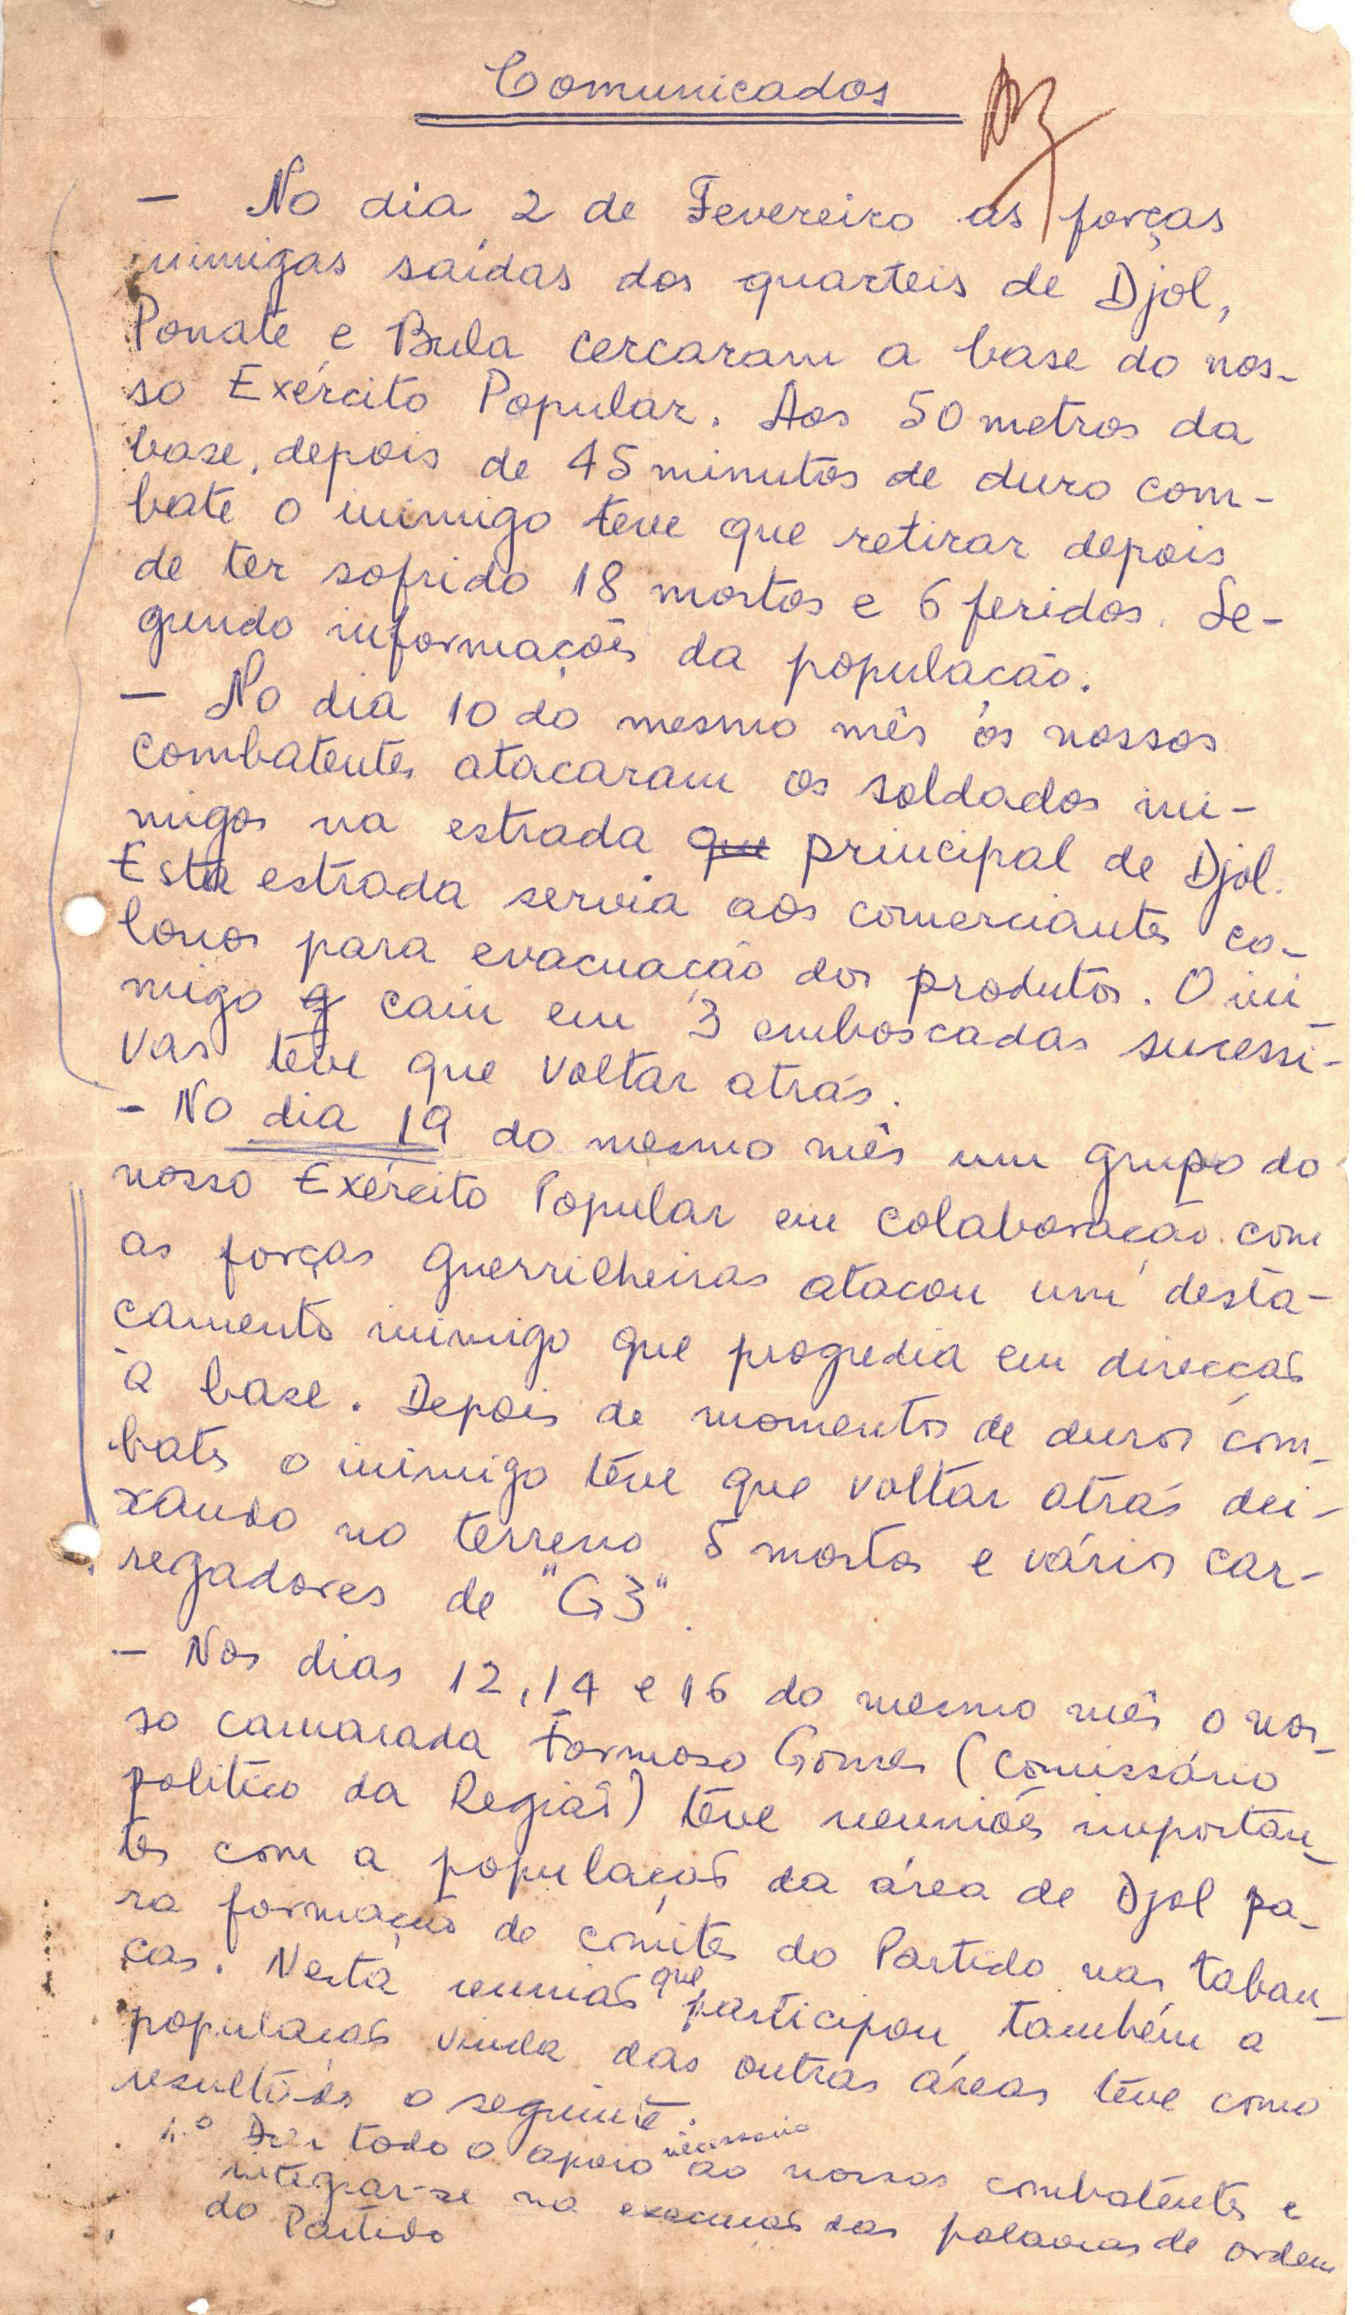 Comunicados
- No dia 2 de Fevereiro as forças
inimigas saídas dos quarteis de Djol,
Ponate e Bula cercaram a base do nos-
so Exército Popular. Aos 50 metros da
base, depois de 45 minutos de duro com-
bate o inimigo teve que retirar depois
de ter sofrido 18 mortos e 6 feridos. Se-
gundo informações da população.
- No dia 10 do mesmo mês os nossos
combatentes atacaram os soldados ini-
migos na estrada que principal de Djol.
Esta estrada servia aos comerciantes co-
lonos para evacuação dos produtos. O ini
migo q caiu em 3 emboscadas sucessi-
vas teve que voltar atrás.
- No dia 19 do mesmo mês um grupo do
nosso Exército Popular em colaboração com
as forças guerrilheiras atacou um desta-
camento inimigo que progredia em direcção
à base. Depois de momentos de duros com-
bates o inimigo teve que voltar atrás dei-
xando no terreno 5 mortos e vários car-
regadores de "G3".
- Nos dias 12, 14 e 16 do mesmo mês o nos-
so camarada Formoso Gomes (comissário
politico da Região) teve reuniões importan-
tes com a população da área de Djol pa-
ra formação de comités do Partido nas taban-
cas. Nesta reunião que participou também a
população vinda das outras áreas teve como
resultados o seguinte.
1.º Dar todo o apoio necessario ao nossos combatentes e
integrar-se na execução das palavras de ordem
do Partido